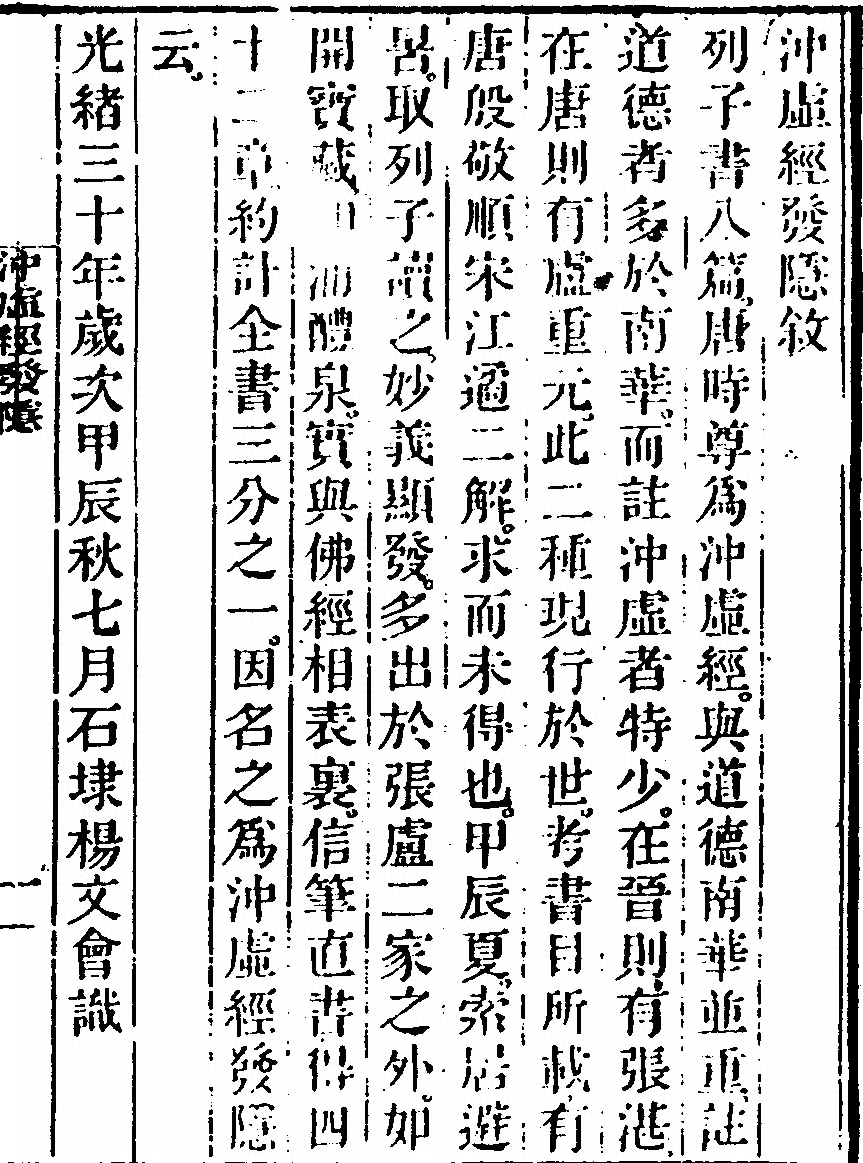 沖虛經發隱敘
列子書八篇、唐時尊爲沖虛經。與道德南華並重、註
道德者多於南華。而註沖虛者特少。在晉則有張湛、
在唐則有盧重元。此二種現行於世。考書目所載、有
唐殷敬順宋江遹二解。求而未得也。甲辰夏。索居避
暑。取列子讀之、妙義顯發。多出於張盧二家之外。如
開寶藏、如涌醴泉。實與佛經相表裏。信筆直書得四
十二章、約計全書三分之一。因名之爲沖虛經發隱
云。
光緒三十年歲次甲辰秋七月石埭楊文會識
沖虛經發隱
一